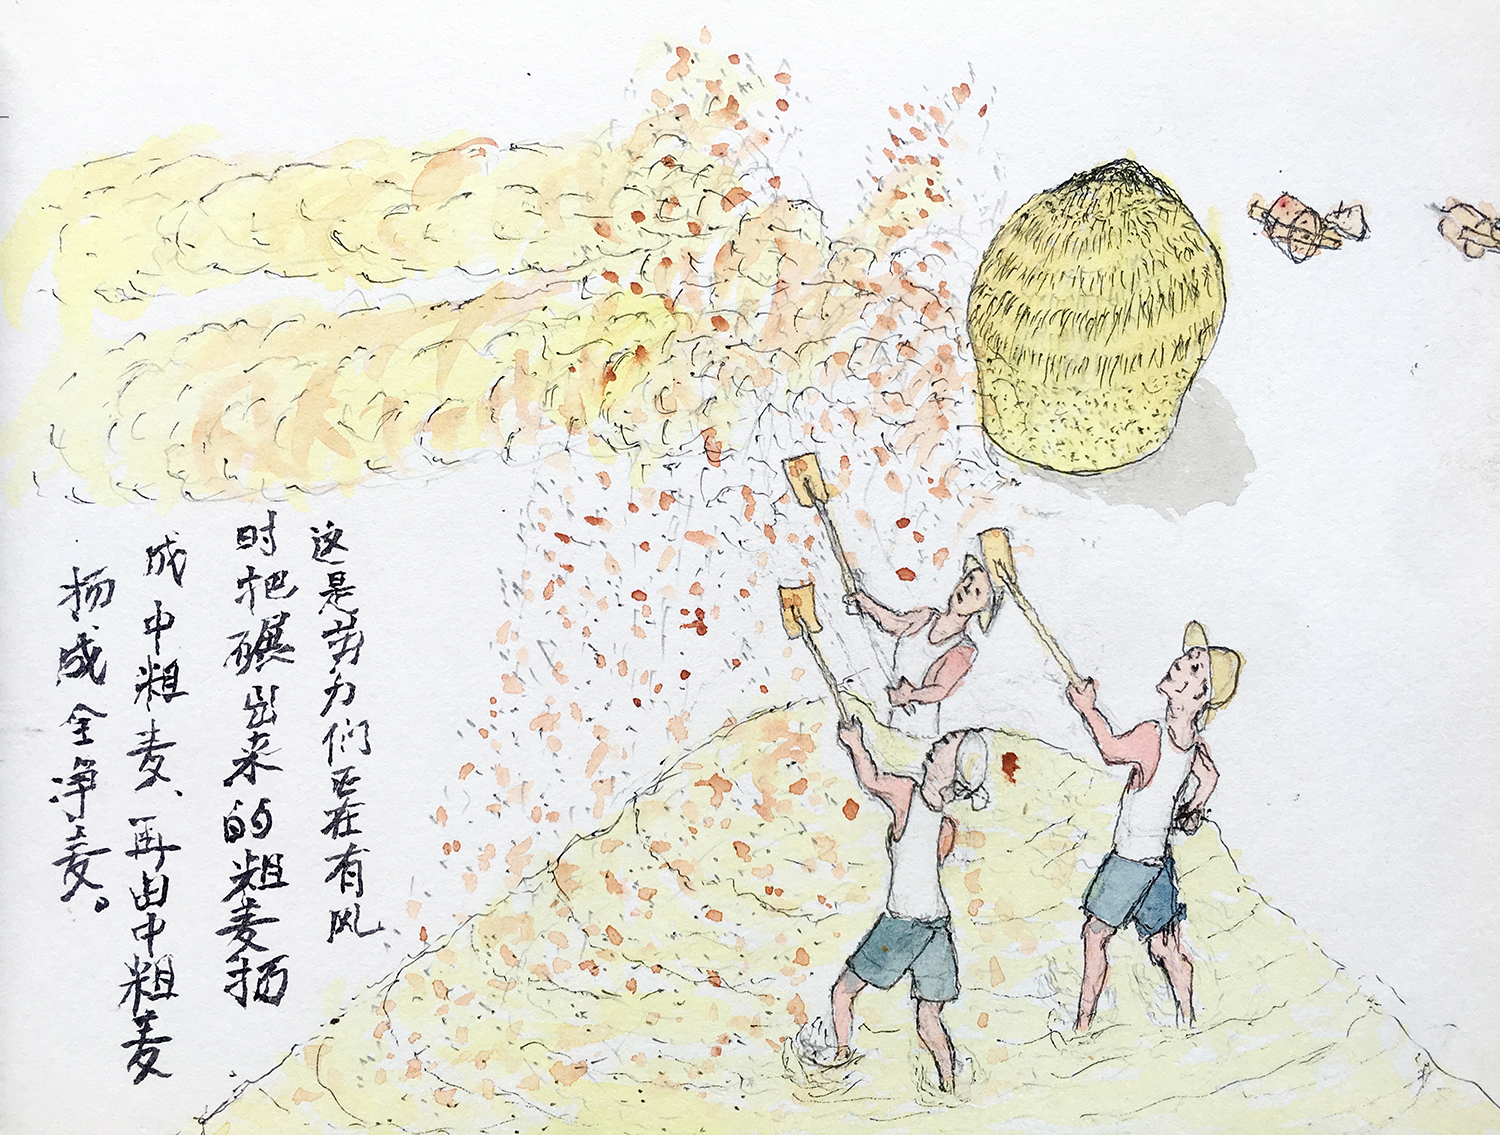 这是劳力们正在有风
时把碾出来的粗麦扬
成中粗麦、再由中粗麦
扬成全净麦。